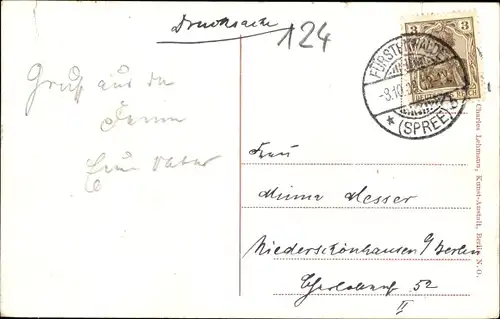 Drucksache
124
Gruß aus der
Ferien
Euer Vater
3
FÜRSTENWALDE
-8.10.
* (SPREE)
Frau
Minna Messer
Niederschönhausen b/Berlin
52
II
Charles Lehmann, Kunst-Anstalt, Berlin N.O.